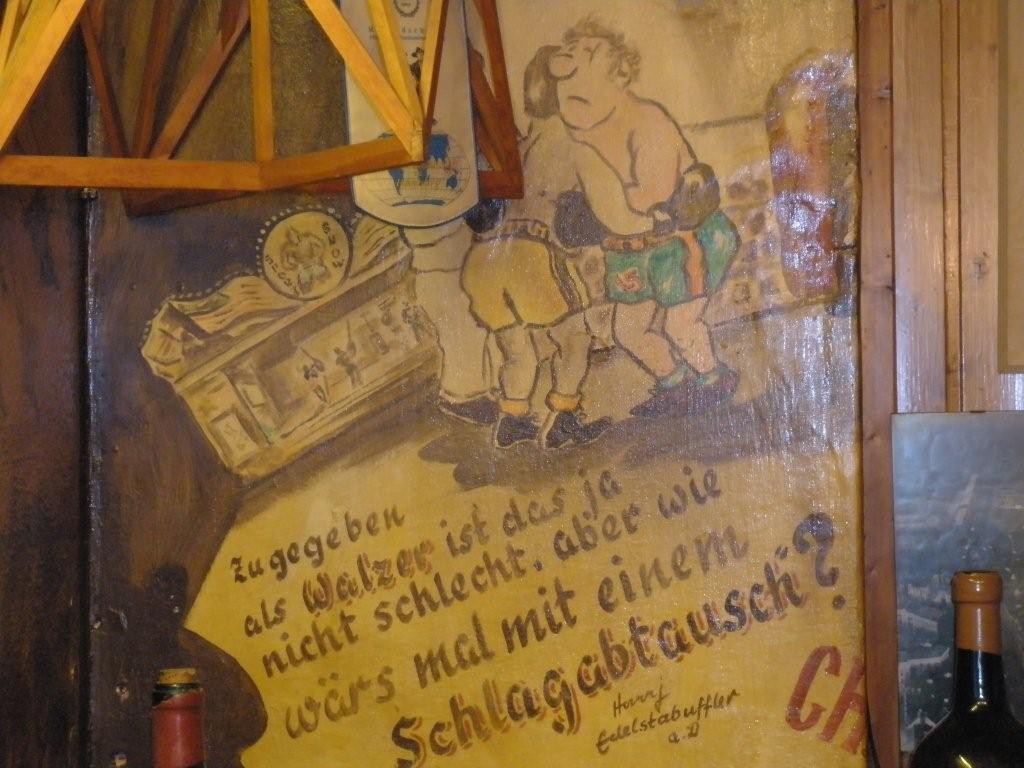 zugegeben
als Walzer ist das ja
nicht schlecht. aber wie
wärs mal mit einem
Schlagabtausch?
Harry
Edelstabuffler
a.D
CH